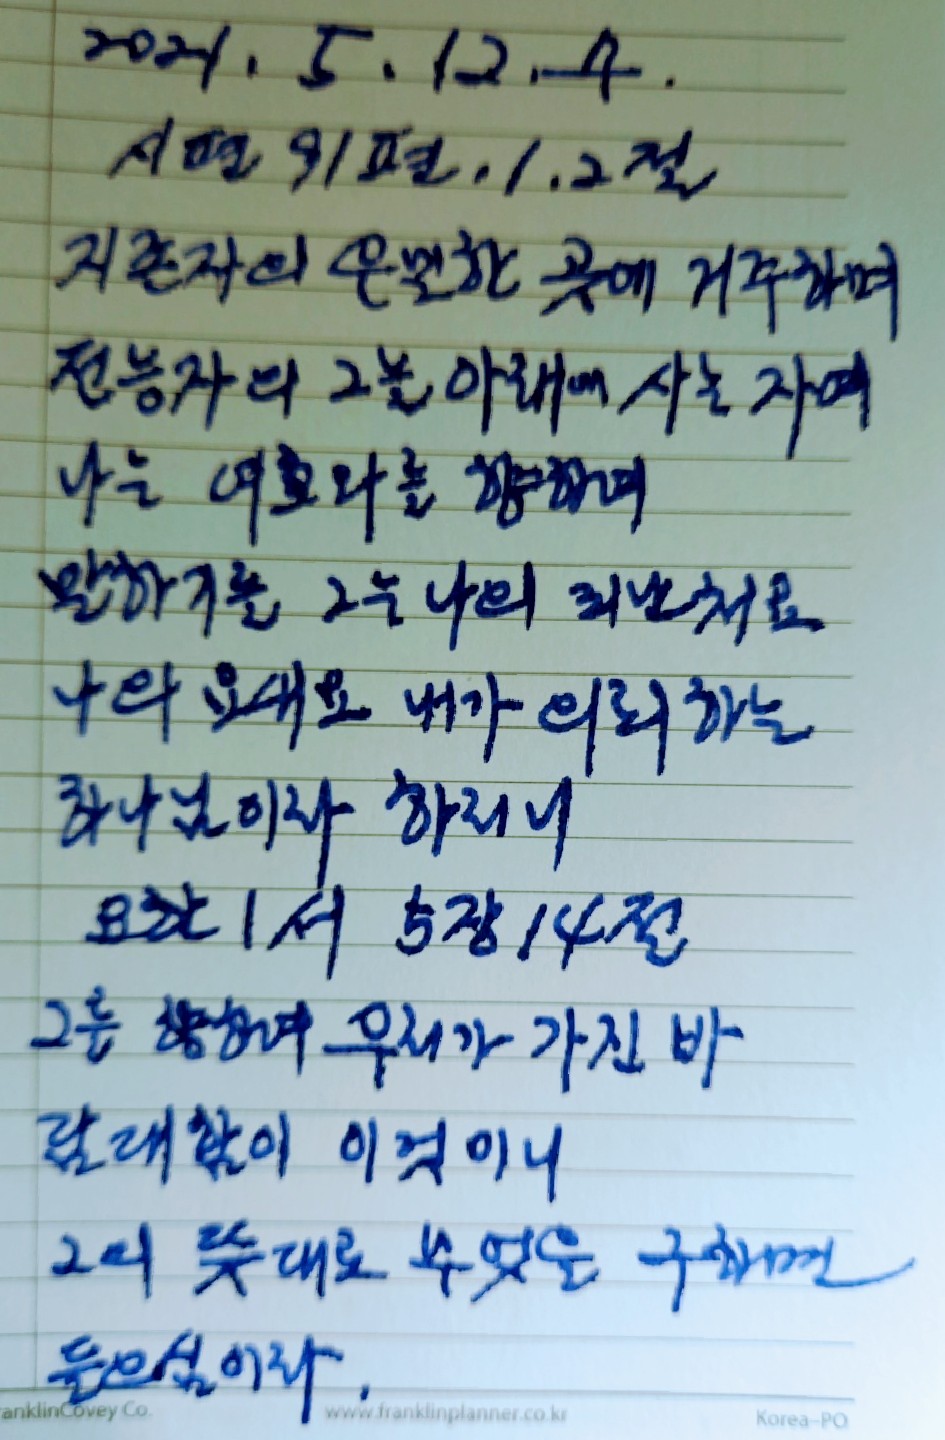 2021. 5. 12. 수.
시편 91편. 1. 2절
지존자의 은밀한 곳에 거주하며
전능자의 그늘 아래에 사는 자여
나는 여호와를 향하여
말하기를 그는 나의 피난처요
나의 요새요 내가 의뢰하는
하나님이라 하리니
요한1서 5장 14절
그를 향하여 우리가 가진 바
담대함이 이것이니
그의 뜻대로 무엇을 구하면
들으심이라.
anklinCovey Co. www.franklinplanner.co.kr Korea-PO